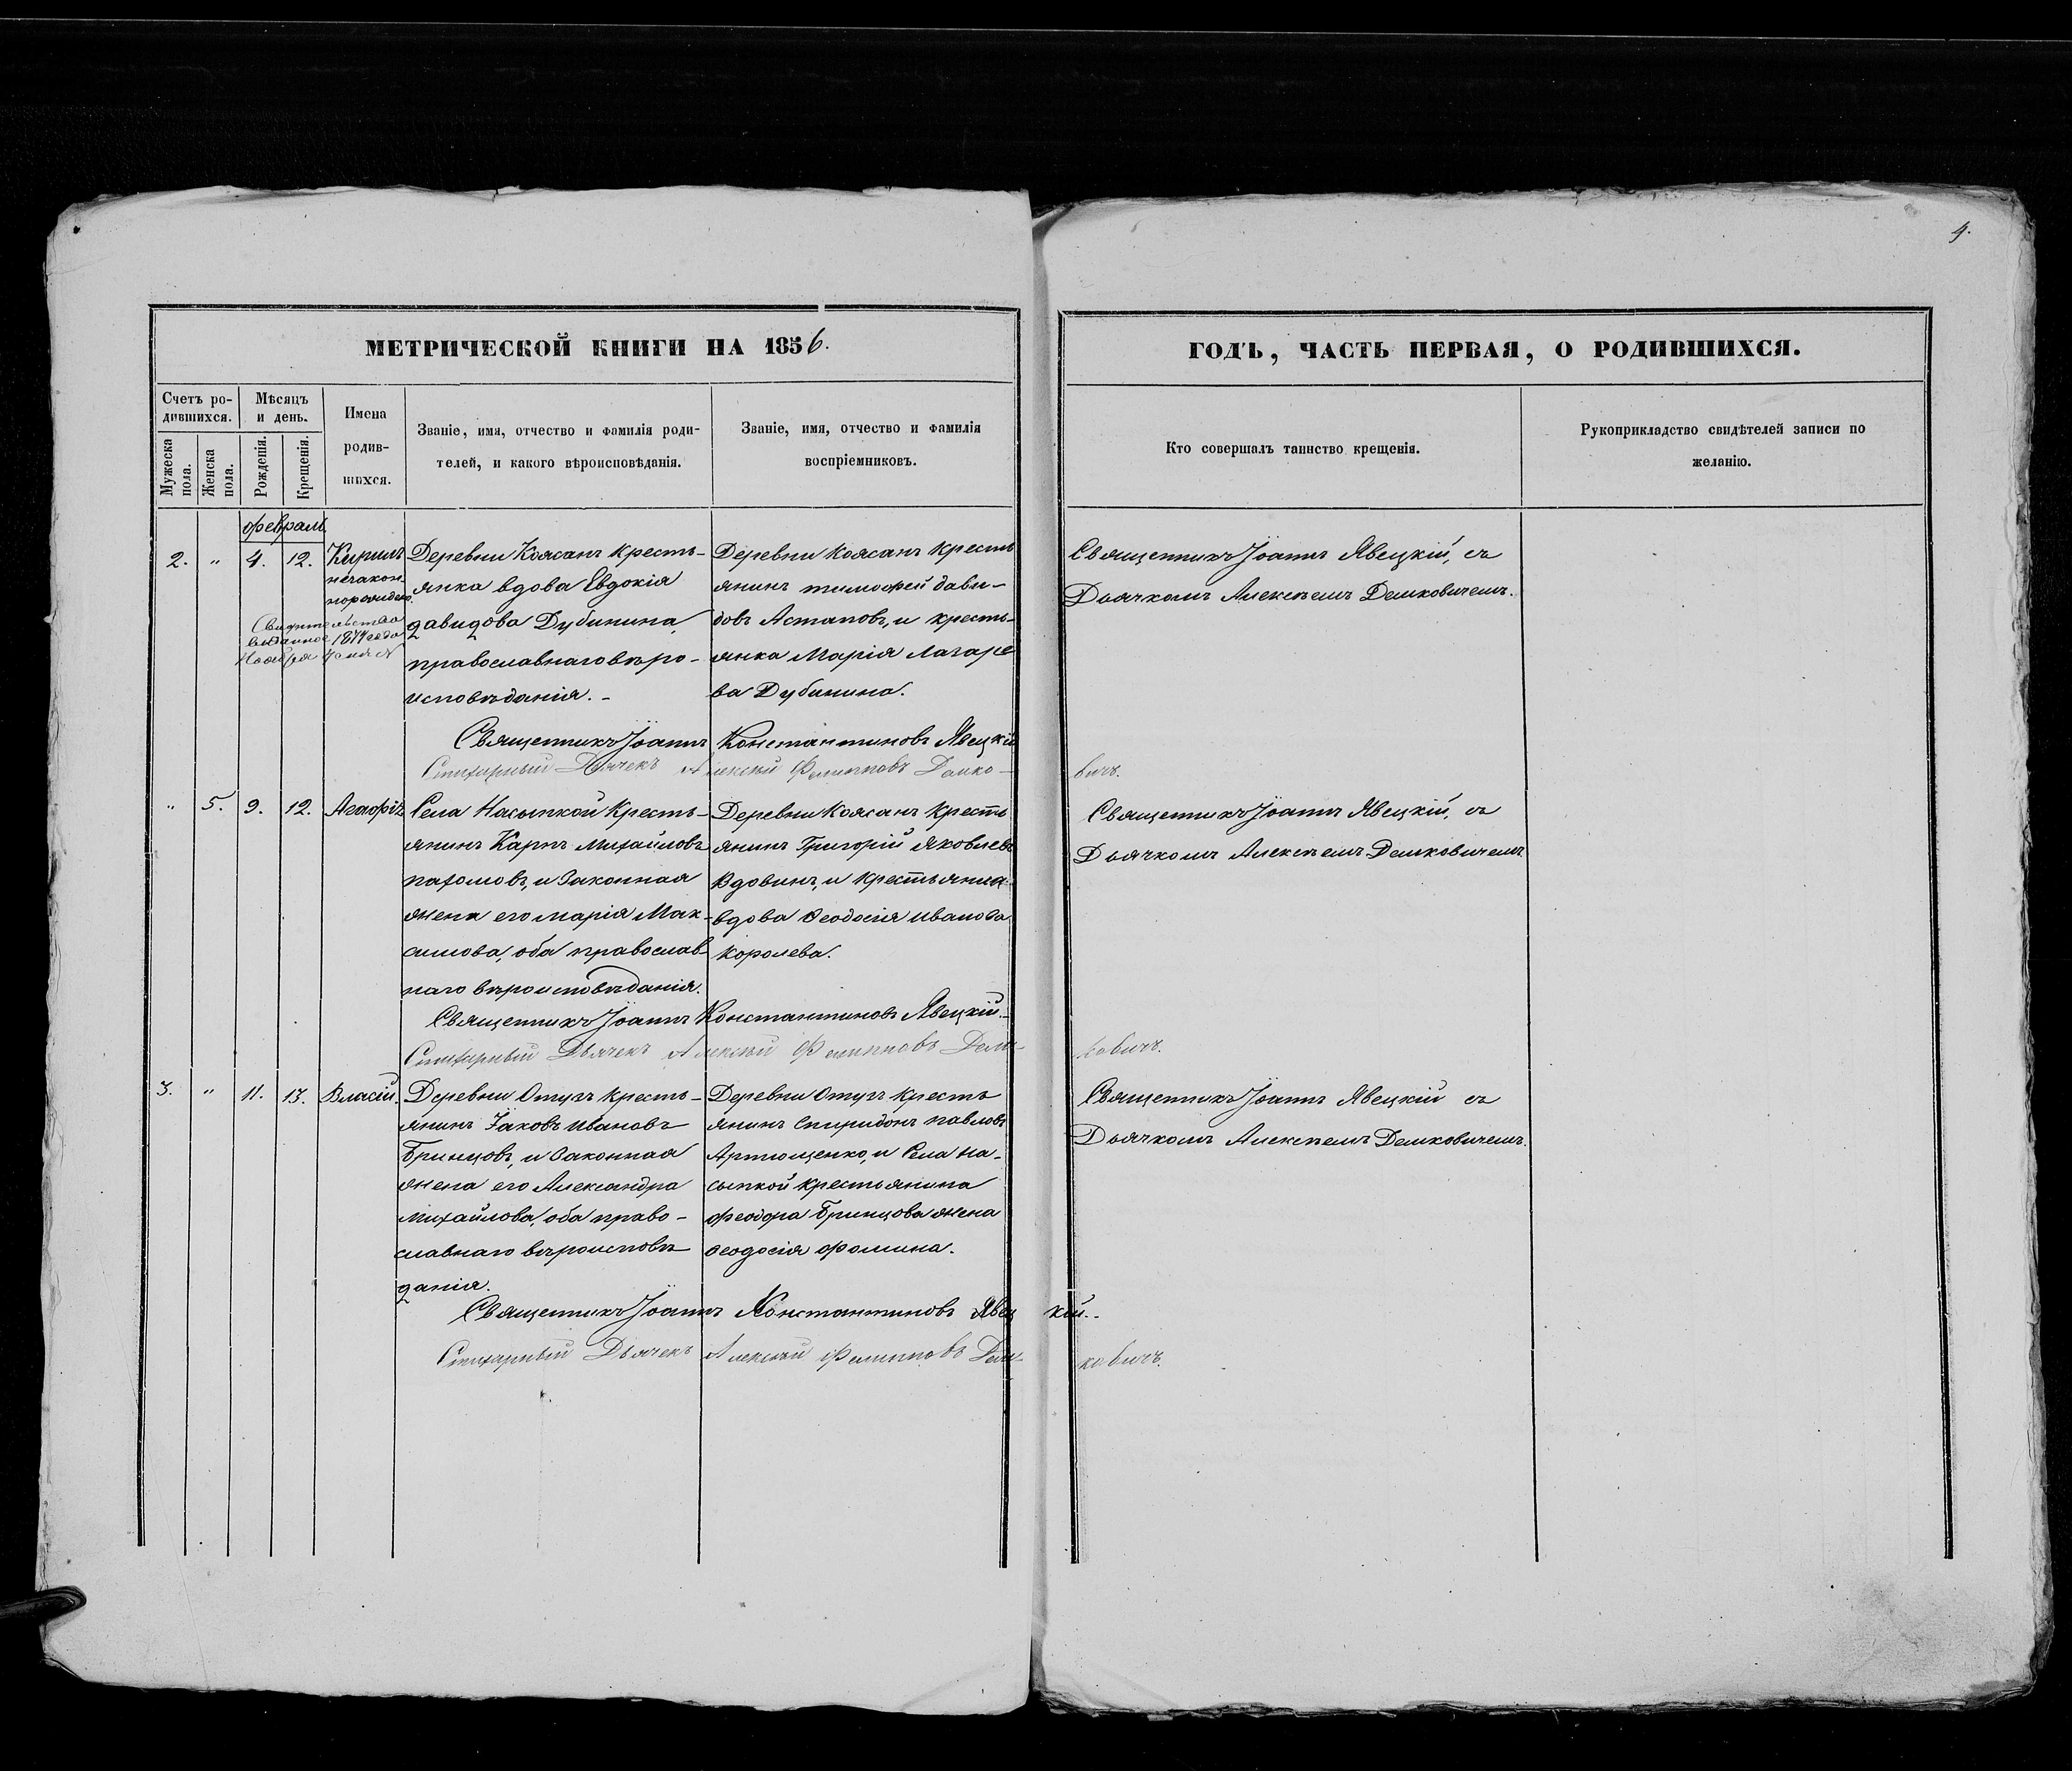 4.
МЕТРИЧЕСКОЙ КНИГИ НА 1856.
ГОДЪ, ЧАСТЬ ПЕРВАЯ, О РОДИВШИХСЯ.
Счетъ ро-
дившихся.
Мужеска пола.
Женска пола.
Мѣсяцъ
и день.
Рожденія.
Крещенія.
Имена
родив-
шихся.
Званіе, имя, отчество и фамилія роди-
телей, и какого вѣроисповѣданія.
Званіе, имя, отчество и фамилія
воспріемниковъ.
Кто совершалъ таинство крещенія.
Рукоприкладство свидѣтелей записи по
желанію.
февраль
2. " 4. 12. Кирилъ
незакон
норожден.
Свидѣтельство
выданное 1874 года
Ноября
Деревни Коясанъ кресть-
янка вдова Евдокія
давидова Дубинина,
православнаго вѣро-
исповѣданія. -
Деревни Коясанъ кресть
янинъ тимофей дави-
довъ Астаповъ, и кресть-
янка Марія Лазаре
ва Дубинина.
Священникъ Іоаннъ Явецкій, съ
Дьячкомъ Алексѣемъ Демковичемъ.
Священникъ Іоаннъ Константиновъ Явецкій
Стихарный Дьячекъ Алексѣй Филипповъ Демко-
вичъ.
" 5. 9. 12. Агафія
Села Насыпкой Кресть-
янинъ Карпъ Михайловъ
пахомовъ, и Законная
жена его марія Мак-
симова, оба православ-
наго вѣроисповѣданія.
Деревни Коясанъ Кресть
янинъ Григорій Яковлевъ
Вдовинъ, и крестьянка
вдова Ѳеодосія иванова
Королева.
Священникъ Іоаннъ Явецкій, съ
Дьячкомъ Алексѣемъ Демковичемъ
Священникъ Іоаннъ Константиновъ Явецкій.
Стихарный Дьячекъ Алексѣй Филипповъ Дем-
ковичъ.
3. " 11. 13. Власій.
Деревни Отузъ кресть-
янинъ Іаковъ Ивановъ
Бринцовъ, и Законная
жена его Александра
михайлова, оба право-
славнаго вѣроисповѣ
данія.
Деревни Отузъ кресть
янинъ Спиридонъ павловъ
Артющенко, и Села На-
сыпкой крестьянина
феодора Бринцова жена
Ѳеодосія фомина.
Священникъ Іоаннъ Явецкій съ
Дьячкомъ Алексѣемъ Демковичемъ.
Священникъ Іоаннъ Константиновъ Явец кій.
Стихарный Дьячекъ Алексѣй Филипповъ Дем-
ковичъ.